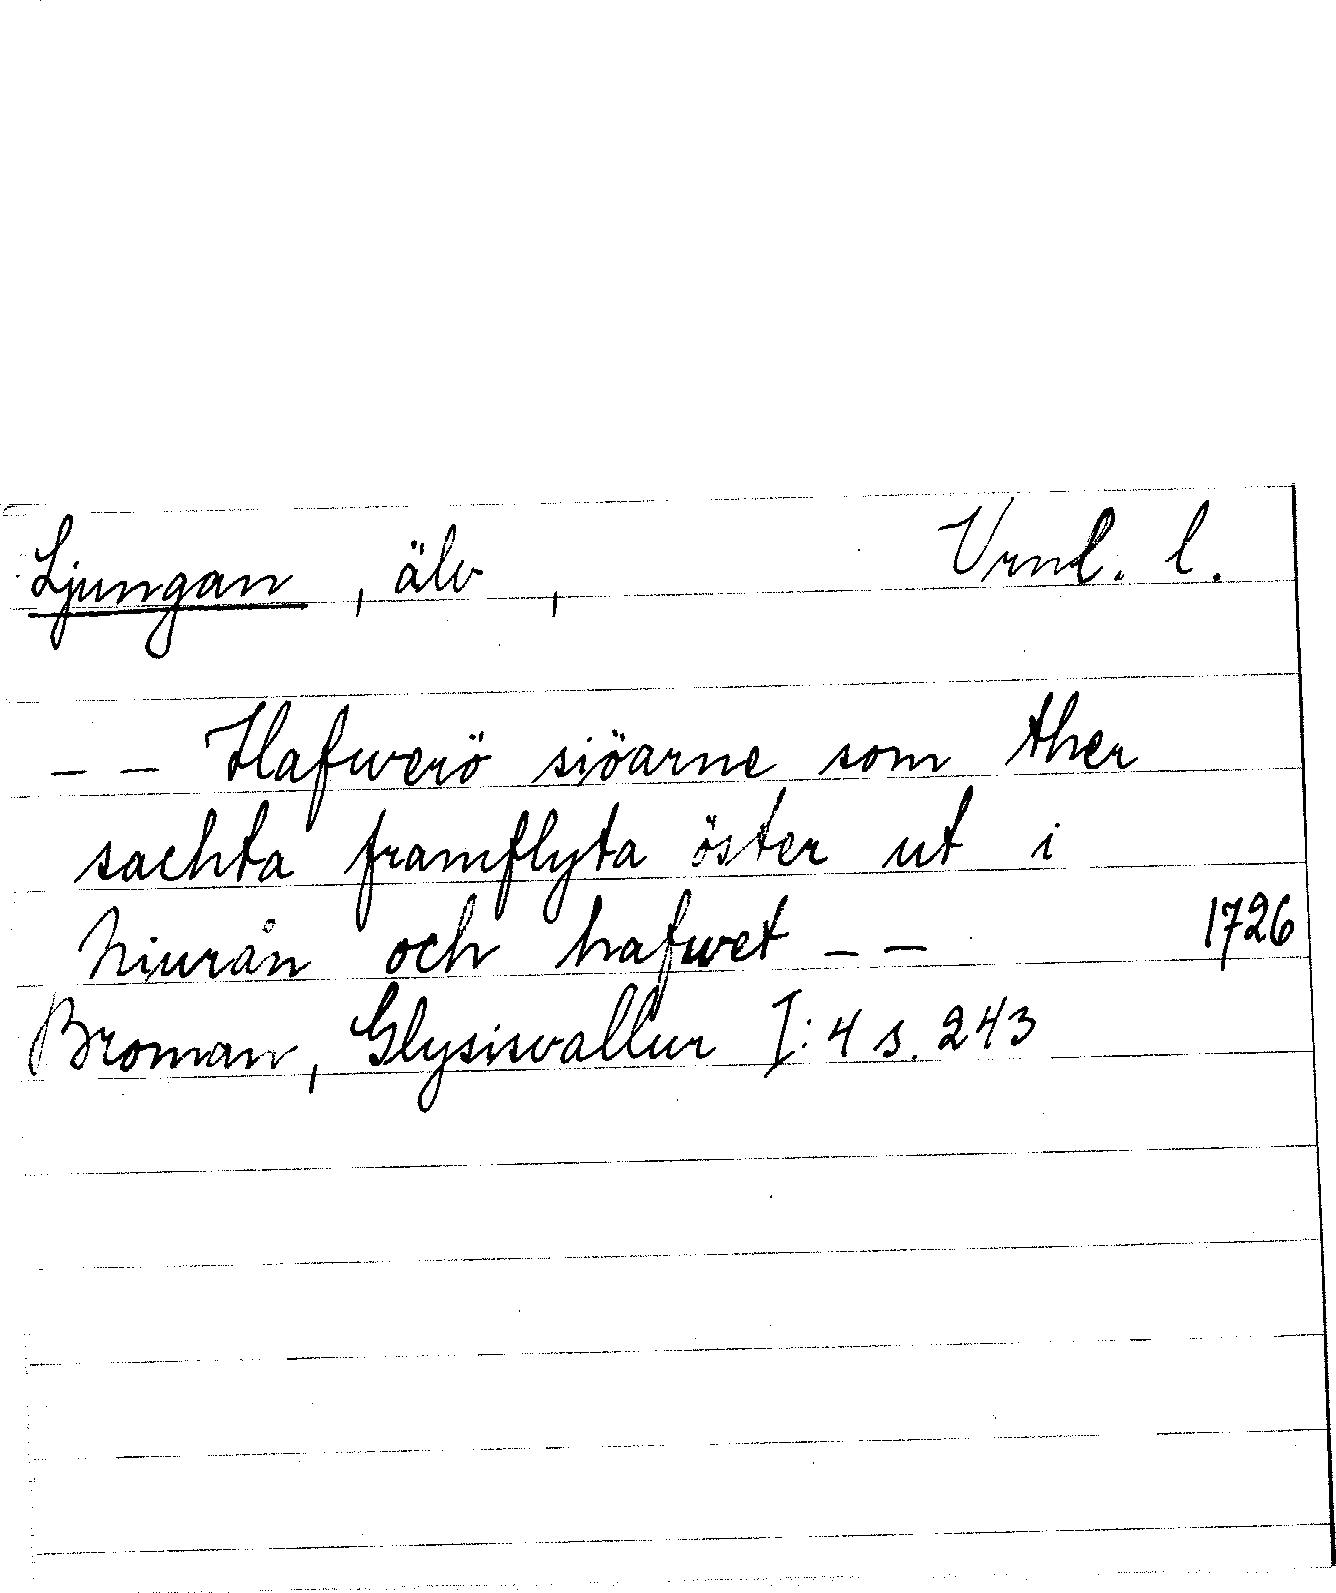 Ljungan, älv, Vrnl. l.
-- Hafwerö siöarne som ther
sachta framflyta öster ut i
Niurån och hafwet -- 1726
Broman, Glysisvallur I:4 s. 243